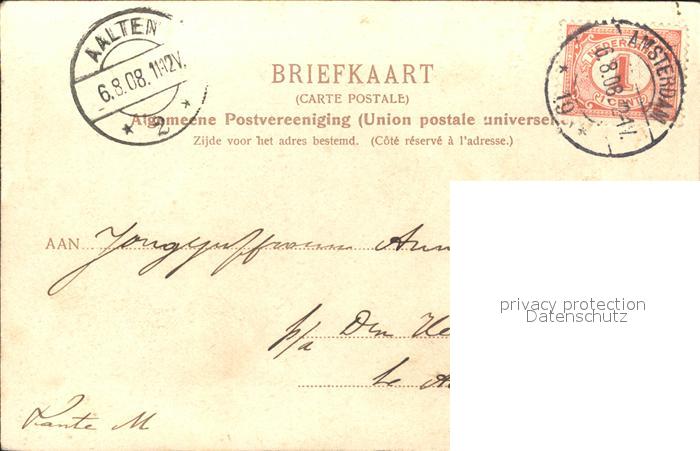 AALTEN
6.8.08. 11-12V.
2
AMSTERDAM
6.8.08
BRIEFKAART
(CARTE POSTALE)
Algemeene Postvereeniging (Union postale universel
Zijde voor het adres bestemd. (Côté réservé à l'adresse.)
AAN Jongejuffrouw Ann
p/a Den He
te A
Tante M
privacy protection
Datenschutz